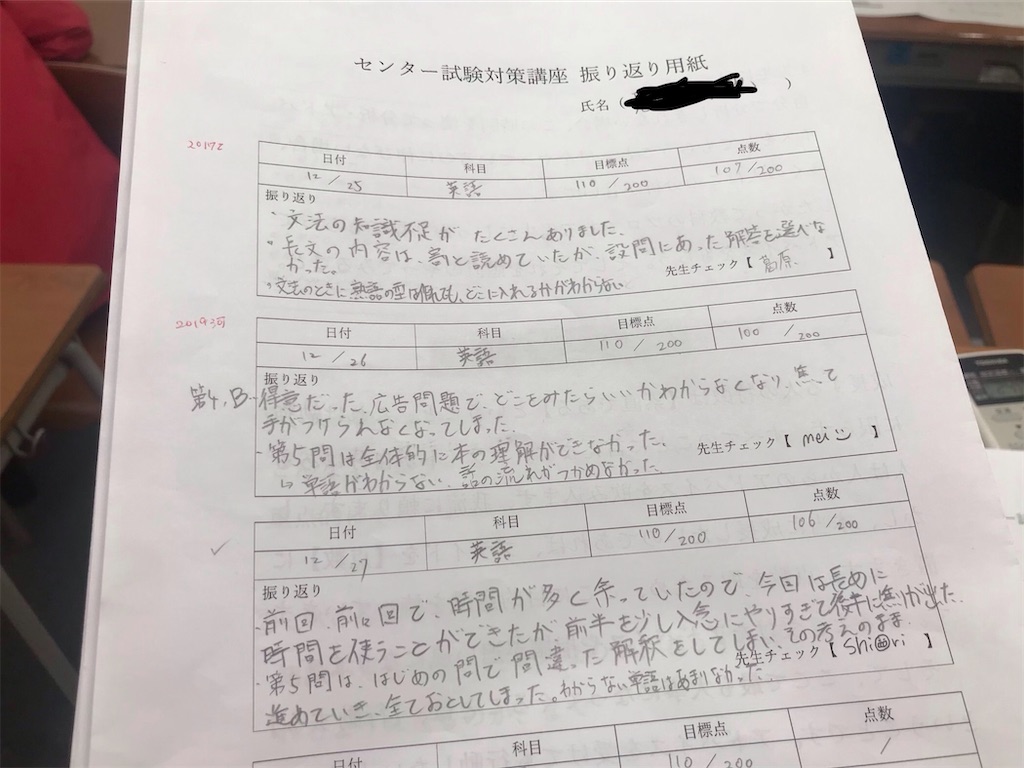 センター試験対策講座 振り返り用紙
氏名（ ）
日付 科目 目標点 点数
12/25 英語 110/200 107/200
振り返り
・文法の知識不足が たくさんありました.
・長文の内容は、割と読めていたが、設問にあった解答を選べな
かった。
先生チェック【 葛原. 】
どこに入れるかがわからない
日付 科目 目標点 点数
12/26 英語 110/200 100/200
振り返り
第4.B…得意だった、広告問題で、どこをみたらいいかわからなくなり、焦って
手がつけられなくなってしまった.
・第5問は全体的に本の理解ができなかった.
先生チェック【 mei 】
↳ 単語がわからない、話の流れがつかめなかった
✓
日付 科目 目標点 点数
12/27 英語 110/200 106/200
振り返り
・前回、前々回で、時間が多く余っていたので、今回は長めに
時間を使うことができたが前半を少し入念にやりすぎて後半に焦りが出た.
・第5問は、はじめの問で間違った解釈をしてしまい、その考えのまま.
先生チェック【 Shiori 】
進めていき、全ておとしてしまった。わからない単語はあまりなかった.
日付 科目 目標点 点数
110/200 /